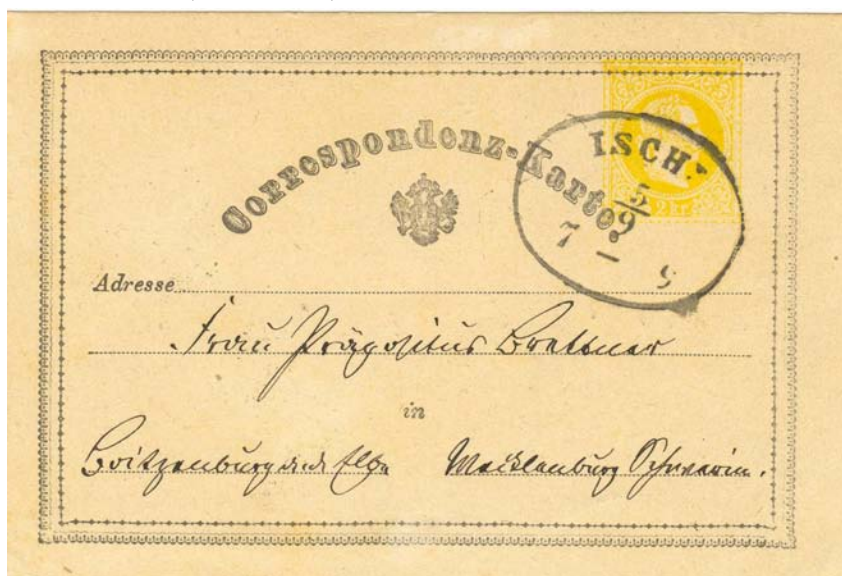 Correspondenz-Karte.
ISCHL
5/9
7 –
Adresse
Frau Präpositus
in
Boitzenburg a. d. Elbe Mecklenburg Schwerin.